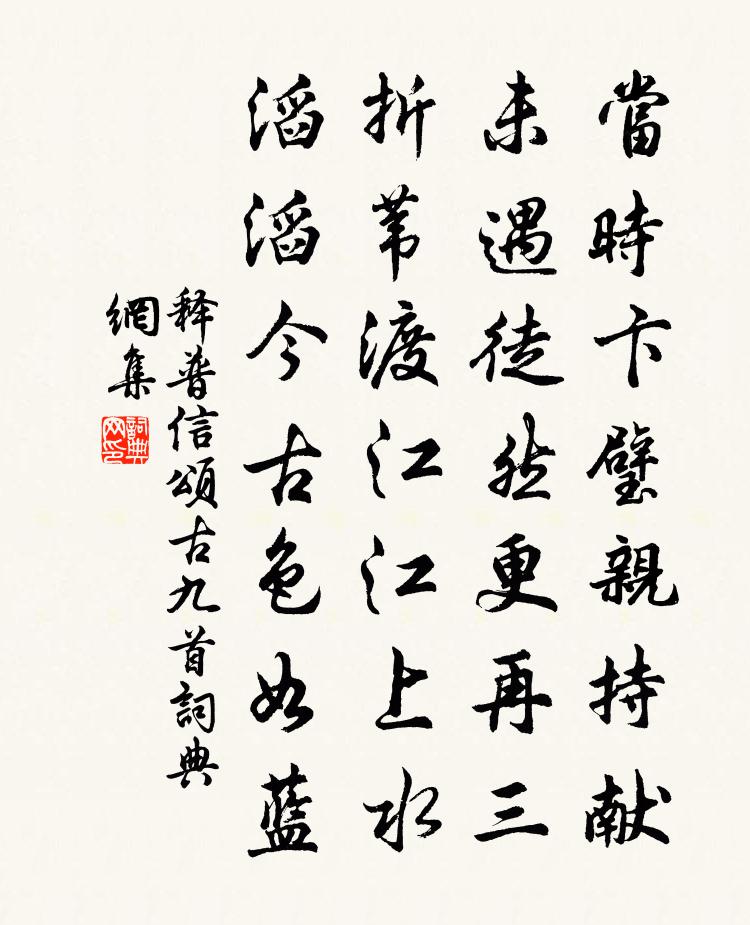 當時卞璧親持献
未遇徒然更再三
折苇渡江江上水
滔滔今古色如藍
释普信頌古九首詞典
網集
詞典
网印